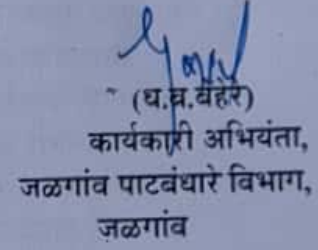 (ध.ब.बेहेरे)
कार्यकारी अभियंता,
जळगांव पाटबंधारे विभाग,
जळगांव